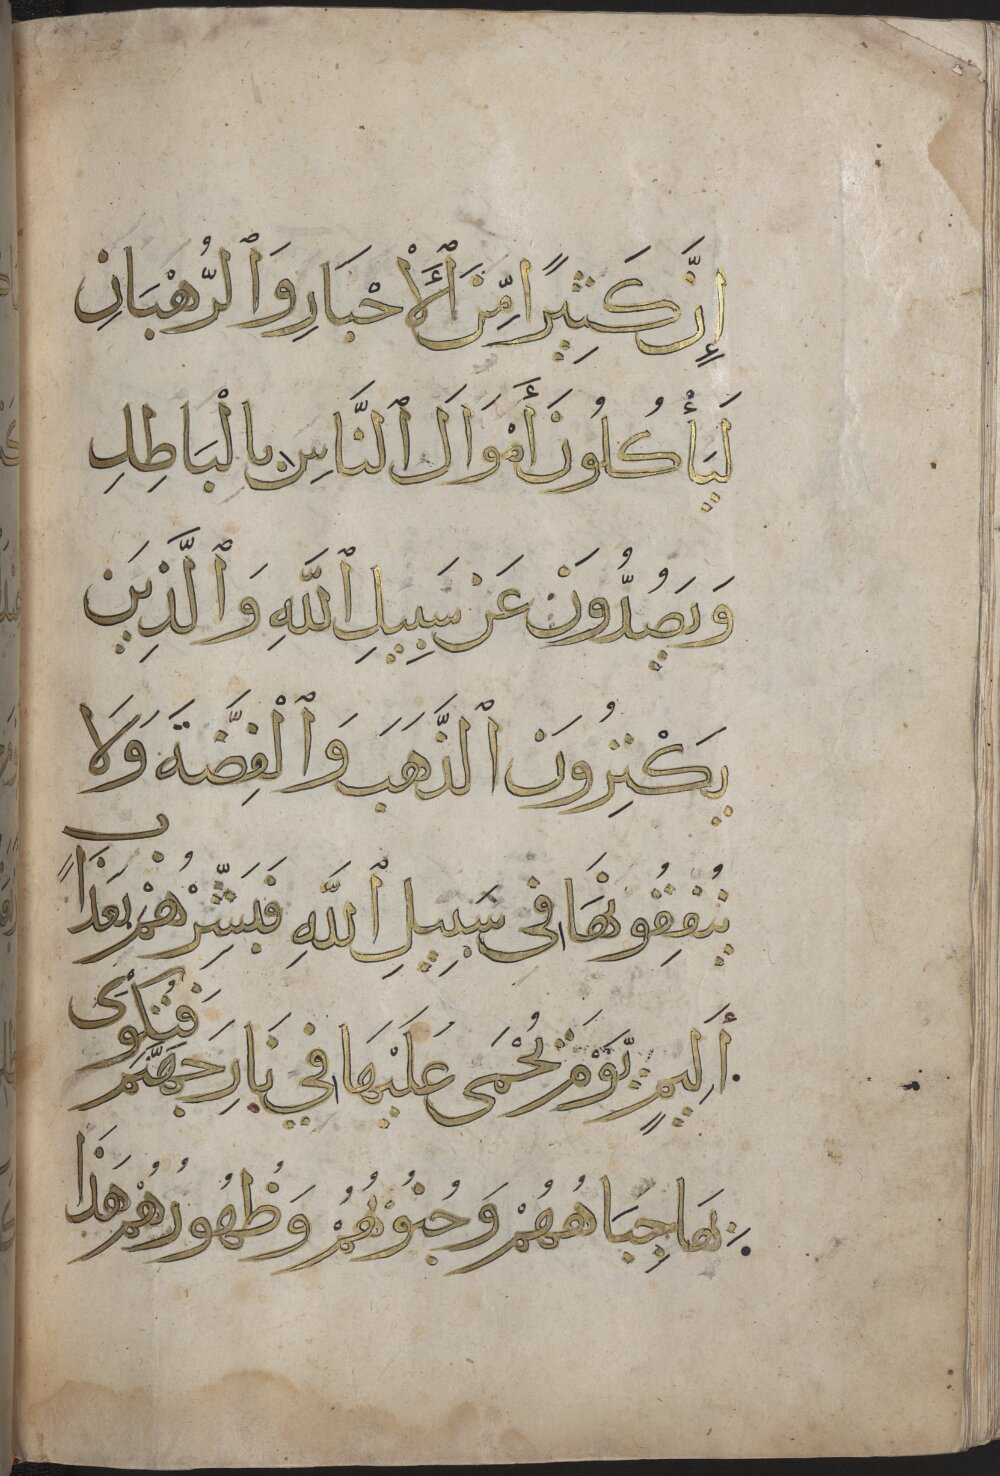 إِنَّ كَثِيرًا مِّنَ ٱلْأَحْبَارِ وَٱلرُّهْبَانِ
لَيَأْكُلُونَ أَمْوَالَ ٱلنَّاسِ بِالْبَاطِلِ
وَيَصُدُّونَ عَن سَبِيلِ ٱللَّهِ وَٱلَّذِينَ
يَكْنِزُونَ ٱلذَّهَبَ وَٱلْفِضَّةَ وَلَا
يُنفِقُونَهَا فِى سَبِيلِ ٱللَّهِ فَبَشِّرْهُمْ بِعَذَابٍ
أَلِيمٍ يَّوْمَ تُحْمَى عَلَيْهَا فِي نَارِ جَهَنَّمَ فَتُكْوَى
بِهَا جِبَاهُهُمْ وَجُنُوبُهُمْ وَظُهُورُهُمْ هَذَا